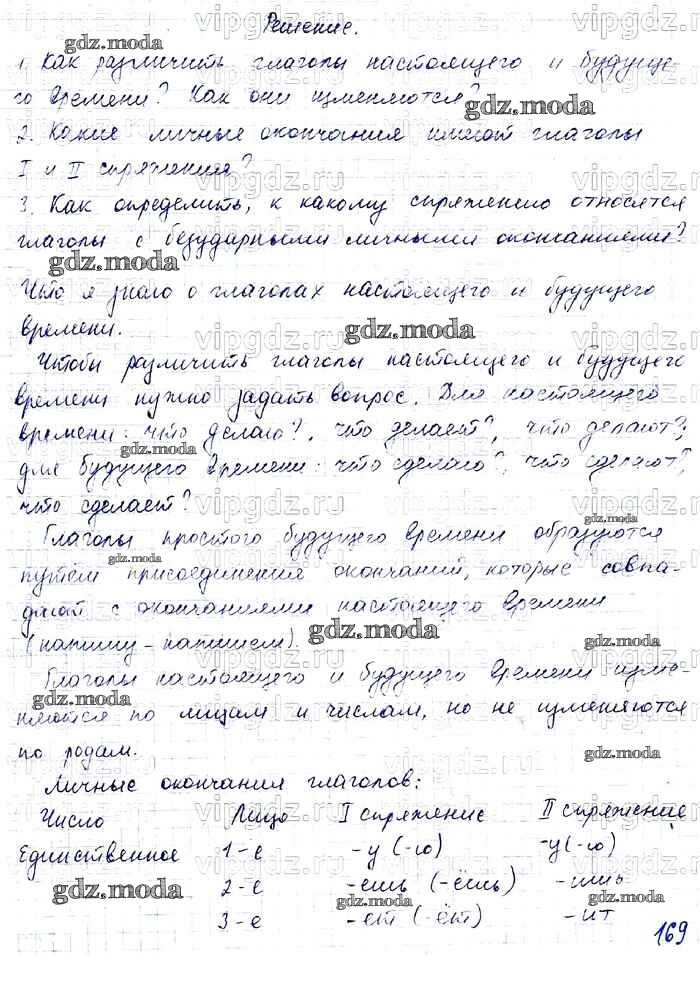 Решение.
1. Как различить глаголы настоящего и будуще-
го времени? Как они изменяются?
2. Какие личные окончания имеют глаголы
I и II спряжения?
3. Как определить, к какому спряжению относятся
глаголы с безударными личными окончаниями?
Что я знаю о глаголах настоящего и будущего
времени.
Чтобы различить глаголы настоящего и будущего
времени нужно задать вопрос. Для настоящего
времени: что делаю?, что делает?, что делают?;
для будущего времени: что сделаю?, что сделают?,
что сделает?
Глаголы простого будущего времени образуются
путём присоединения окончаний, которые совпа-
дают с окончаниями настоящего времени
(напишу - напишем).
Глаголы настоящего и будущего времени изме-
няются по лицам и числам, но не изменяются
по родам.
Личные окончания глаголов:
Число Лицо I спряжение II спряжение
Единственное 1-е -у (-ю) -у (-ю)
2-е -ешь (-ёшь) -ишь
3-е -ет (-ёт) -ит
169
gdz.moda
vipgdz.ru